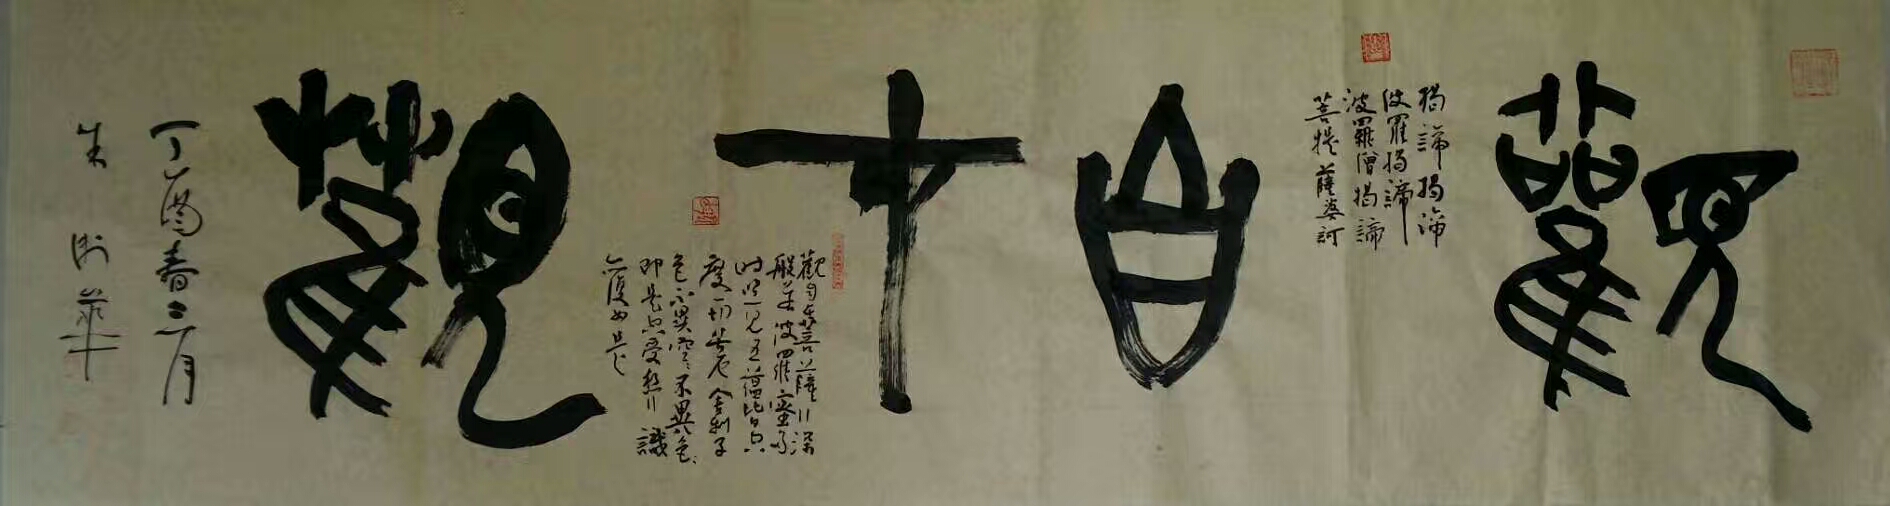 觀自在觀
揭諦揭諦
波羅揭諦
波羅僧揭諦
菩提薩婆訶
觀自在菩薩行深
般若波羅蜜多
時照見五蘊皆空
度一切苦厄舍利子
色不異空〻不異色
即是空受想行識
亦復如是
丁酉春三月
朱華